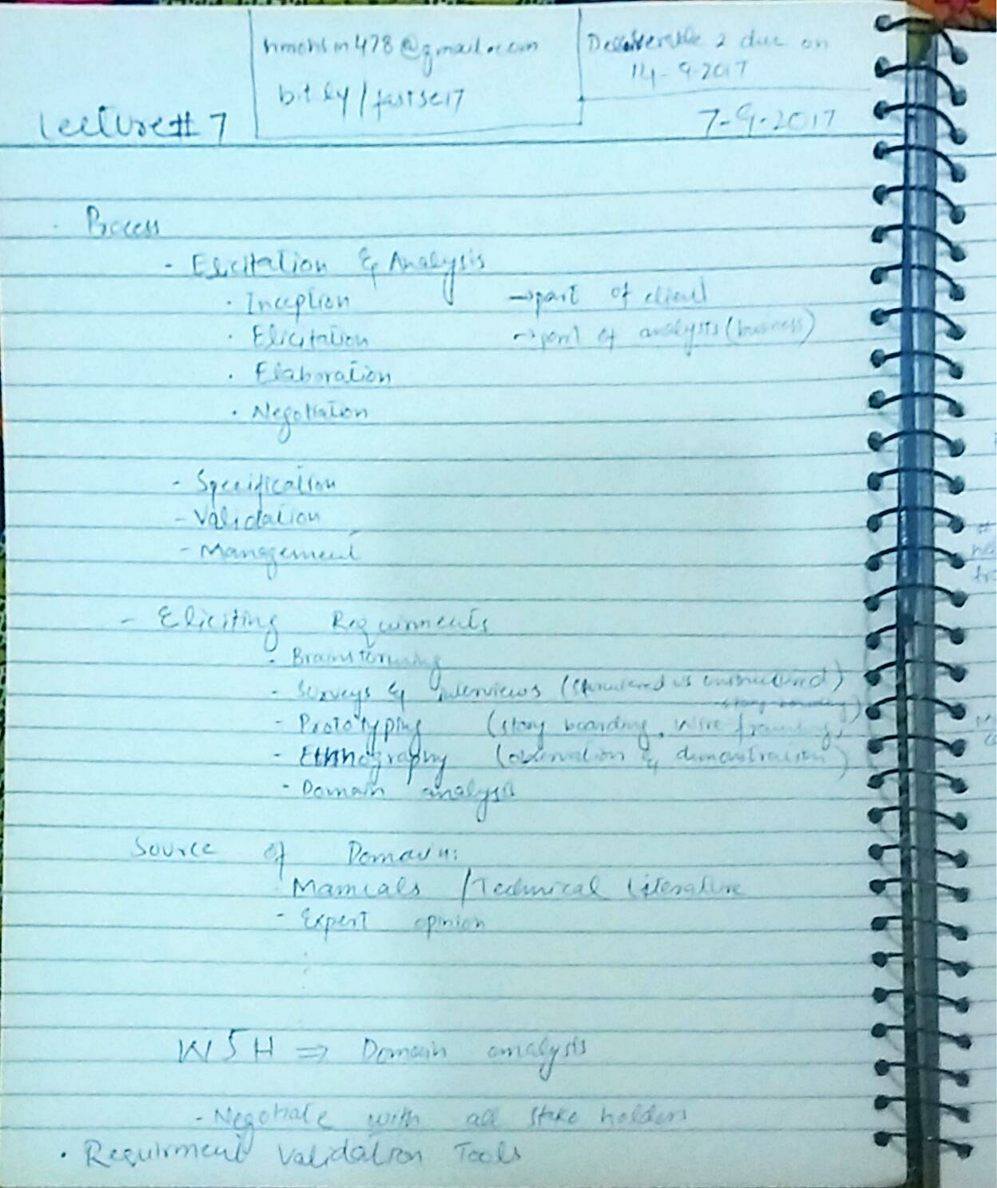 hmohsin478@gmail.com
bit.ly/fastse17
Deliverable 2 due on
14-9-2017
Lecture# 7
7-9-2017
· Process
- Elicitation & Analysis
· Inception → part of client
· Elicitation → part of analysts (business)
· Elaboration
· Negotiation
- Specification
- Validation
- Management
- Eliciting Requirments
· Brainstorming
- Surveys & interviews (structured vs unstructured)
- Prototyping (story boarding, wire framing, story boarding)
- Ethnography (observation & demonstration)
- Domain analysis
Source of Domain:
Manuals / Technical Literature
- Expert opinion
W5H ⇒ Domain analysis
- Negotiate with all stake holders
· Requirment Validation Tools